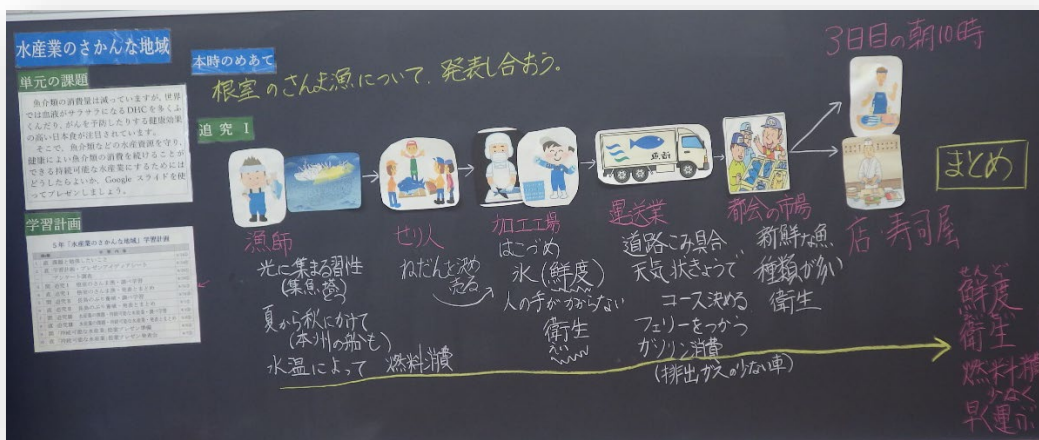 水産業のさかんな地域
単元の課題
魚介類の消費量は減っていますが、世界
では血液がサラサラになるDHCを多くふ
くんだり、がんを予防したりする健康効果
の高い日本食が注目されています。
そこで、魚介類などの水産資源を守り、
健康によい魚介類の消費を続けることが
できる持続可能な水産業にするためには
どうしたらよいか、Google スライドを使
ってプレゼンしましょう。
学習計画
5年「水産業のさかんな地域」学習計画
本時のめあて
根室のさんま漁について、発表し合おう。
追究Ⅰ
漁師
光に集まる習性
(集魚灯)
夏から秋にかけて
(本州の船も)
水温によって
燃料消費
せり人
ねだんを決め
売る
加工工場
はこづめ
氷(鮮度)
人の手がかからない
衛生
運送業
道路こみ具合
天気 状きょうで
コース決める
フェリーをつかう
ガソリン消費
(排出ガスの少ない車)
都会の市場
新鮮な魚
種類が多い
衛生
3日目の朝10時
店・寿司屋
まとめ
せんど
鮮度
衛生
燃料消費
少なく
早く運ぶ